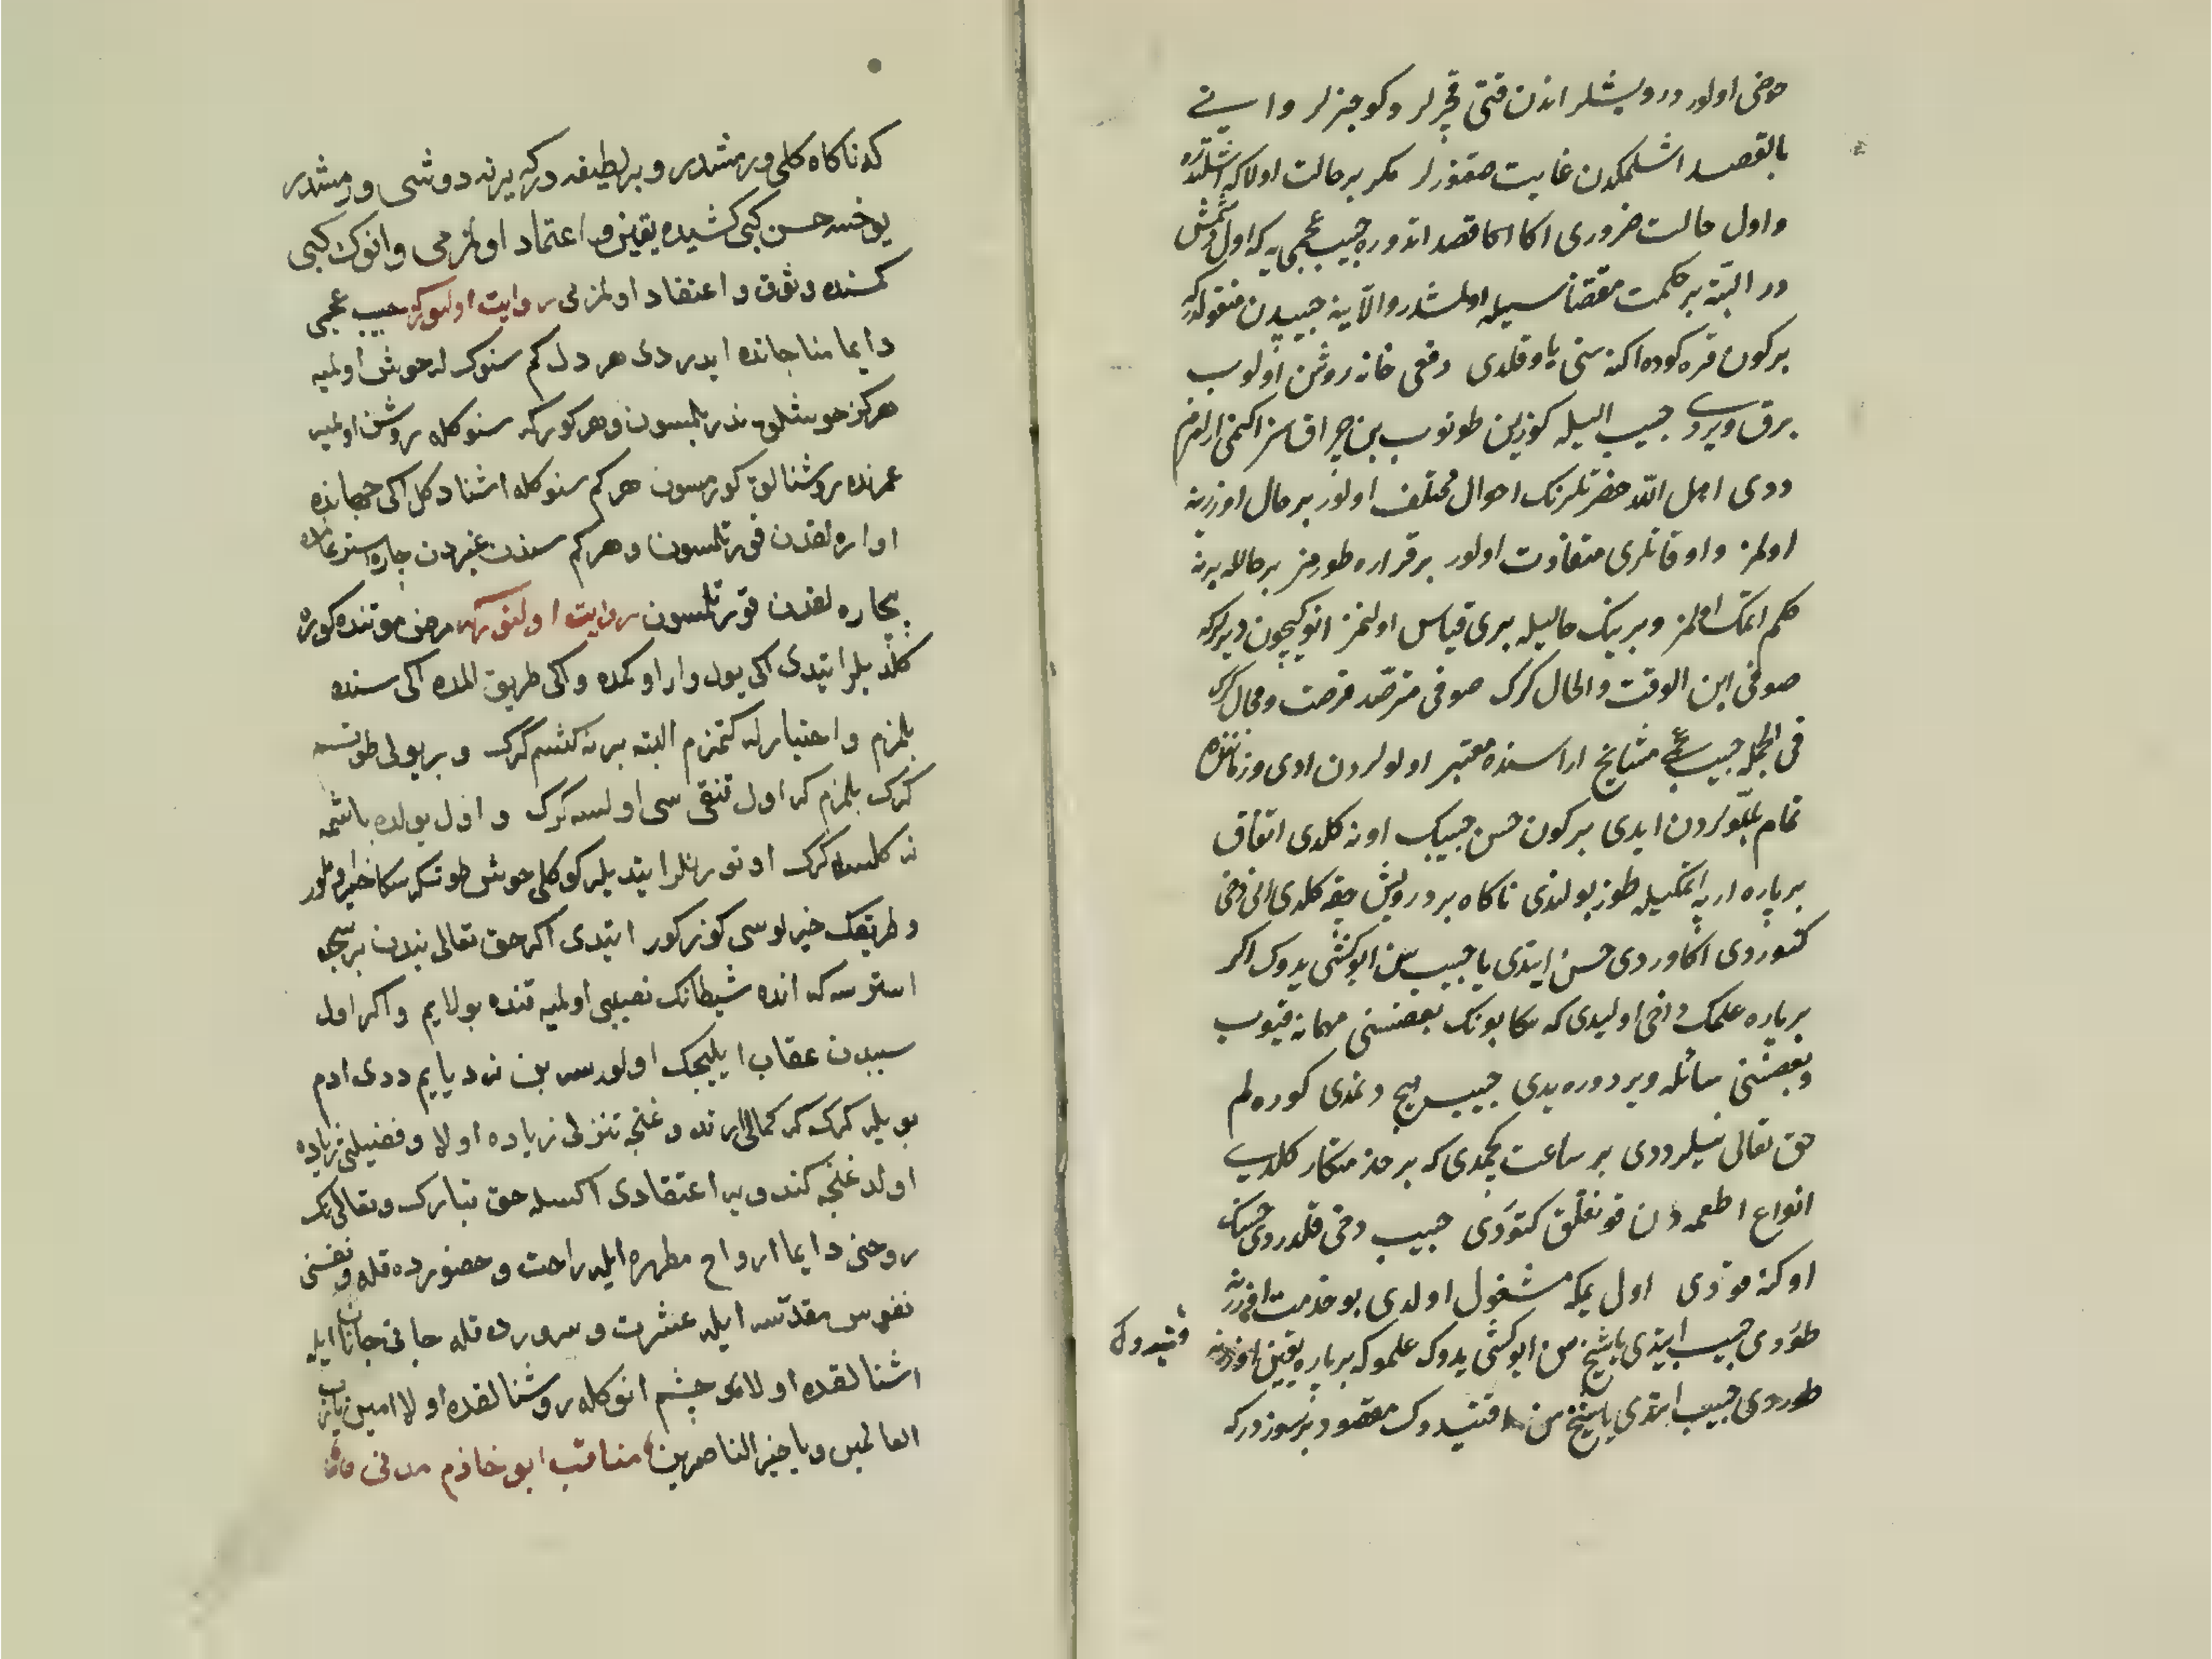 خوضی اولور درویشلر اندن قتی قچرلر وکوجنرلر وانی
بالقصد اشلمکدن غایت صقنورلر مکر بر حالت اولا که اشلتدره
واول حالت ضروری اکا اکا قصد اندوره حبیب عجمی یه که اول دشمش
در البته بر حکمت مقتضاسیله اولمشدر والا ینه حبیبدن منقولدرکه
بر کون قره کوده اکنه سنی یاو قلدی دفعی خانه روشن اولوب
برق ویردی حبیب الیله کوزین طوتوب بن چراقسز اکنمی ارارم
ددی اهل الله حضرتلرنک احوال مختلف اولور بر حال اوزرینه
اولمز واوقاتلری متفاوت اولور بر قراره طورمز بر حالله برینه
حکم اتمک اولمز وبرینک حالیله بری قیاس اولنمز انوکیچون دیرلرکه
صوفی ابن الوقت والحال کرک صوفی مترصد فرصت ومجال کرک
فی الجمله حبیب عجمی مشایخ اراسنده معتبر اولولردن ادی وزماننده
تمام بللولردن ایدی بر کون حسن حبیبک اونه کلدی اتفاق
بر پاره ارپه اتمکیله طوز بولندی ناکاه بر درویش چقه کلدی انی دخی
کتوردی اکا وردی حسن ایتدی یا حبیب سن ایو کشی یدوک اکر
بر پاره علمک دخی اولیدی که سکا بونک بعضسنی مهمانه قیوب
وبعضسنی سائله ویر دوره یدی حبیب هیچ دنمدی کوره لم
حق تعالی نیلر ددی بر ساعت کچمدی که بر خذمتکار کلدی
انواع اطعمه دن قونقلق کتوردی حبیب دخی قلدردی حسنک
اوکنه قودی اول یمکه مشغول اولدی بو خدمت اوزرینه
طوردی حبیب ایتدی یا شیخ سن ایو کشی یدوک علموکه بر پاره یقین اوزرینه قتیدوک
طوردی حبیب ایتدی یا شیخ سن قتیدوک مقصود بر سوزدرکه
که ناکاه کلی ورمشدر وبر لطیفه درکه یرنه دوشی ورمشدر
یوخسه حسن کبی کشیده یقین و اعتماد اولمزمی وانوک کبی
کمسنده وثوق واعتقاد اولمزمی روایت اولنورکه حبیب عجمی
دایما مناجاتده ایدردی هر دل کم سنوک له خوش اولمیه
هرکز خوشلق ندر بلمسون وهر کوز که سنوکله روشن اولمیه
عمرنده روشنالق کورمسون هر کم سنوکله اشنا دکل اکی جهانده
اواره لقدن قورتلمسون وهر کم سندن غیردن چاره استر عالمده
بیچاره لقدن قورتلمسون روایت اولنورکه مرض موتنده کوره
کلدیلر ایتدی اکی یول وار اوکمده واکی طریق المده اکی سنده
بلمزم واختیارله کتمزم البته برینه کتسم کرک وبر یولی طوتسم
کرک بلمزم که اول قنقی سی اولسه کرک واول یولده باشمه
نه کلسه کرک اوتورنلر ایتدیلر کوکلی خوش طوتکه سکا خیر اولور
وطریقک خیرلوسی کوزکور ایتدی اکر حق تعالی بندن بر سجده
استرسه که انده شیطانک نصیبی اولمیه قنده بولایم واکر اول
سببدن عقاب ایلیجک اولورسه بن نه دیایم ددی ادم
بویله کرک که کمالی ارتدوغنجه تنزلی زیاده اولا وفضیلتی زیاده
اولدوغنجه کندویه اعتقادی اکسله حق تبارک وتعالی نک
روحنی دایما ارواح مطهره ایله راحت وحضورده قله ونفسنی
نفوس مقدسه ایله عشرت وسرورده قله جانی جانان ایله
اشنالقده اولا وچشم انوکله روشنالقده اولا امین یا رب
العالمین ویا خیر الناصرین مناقب ابو خازم مدنی